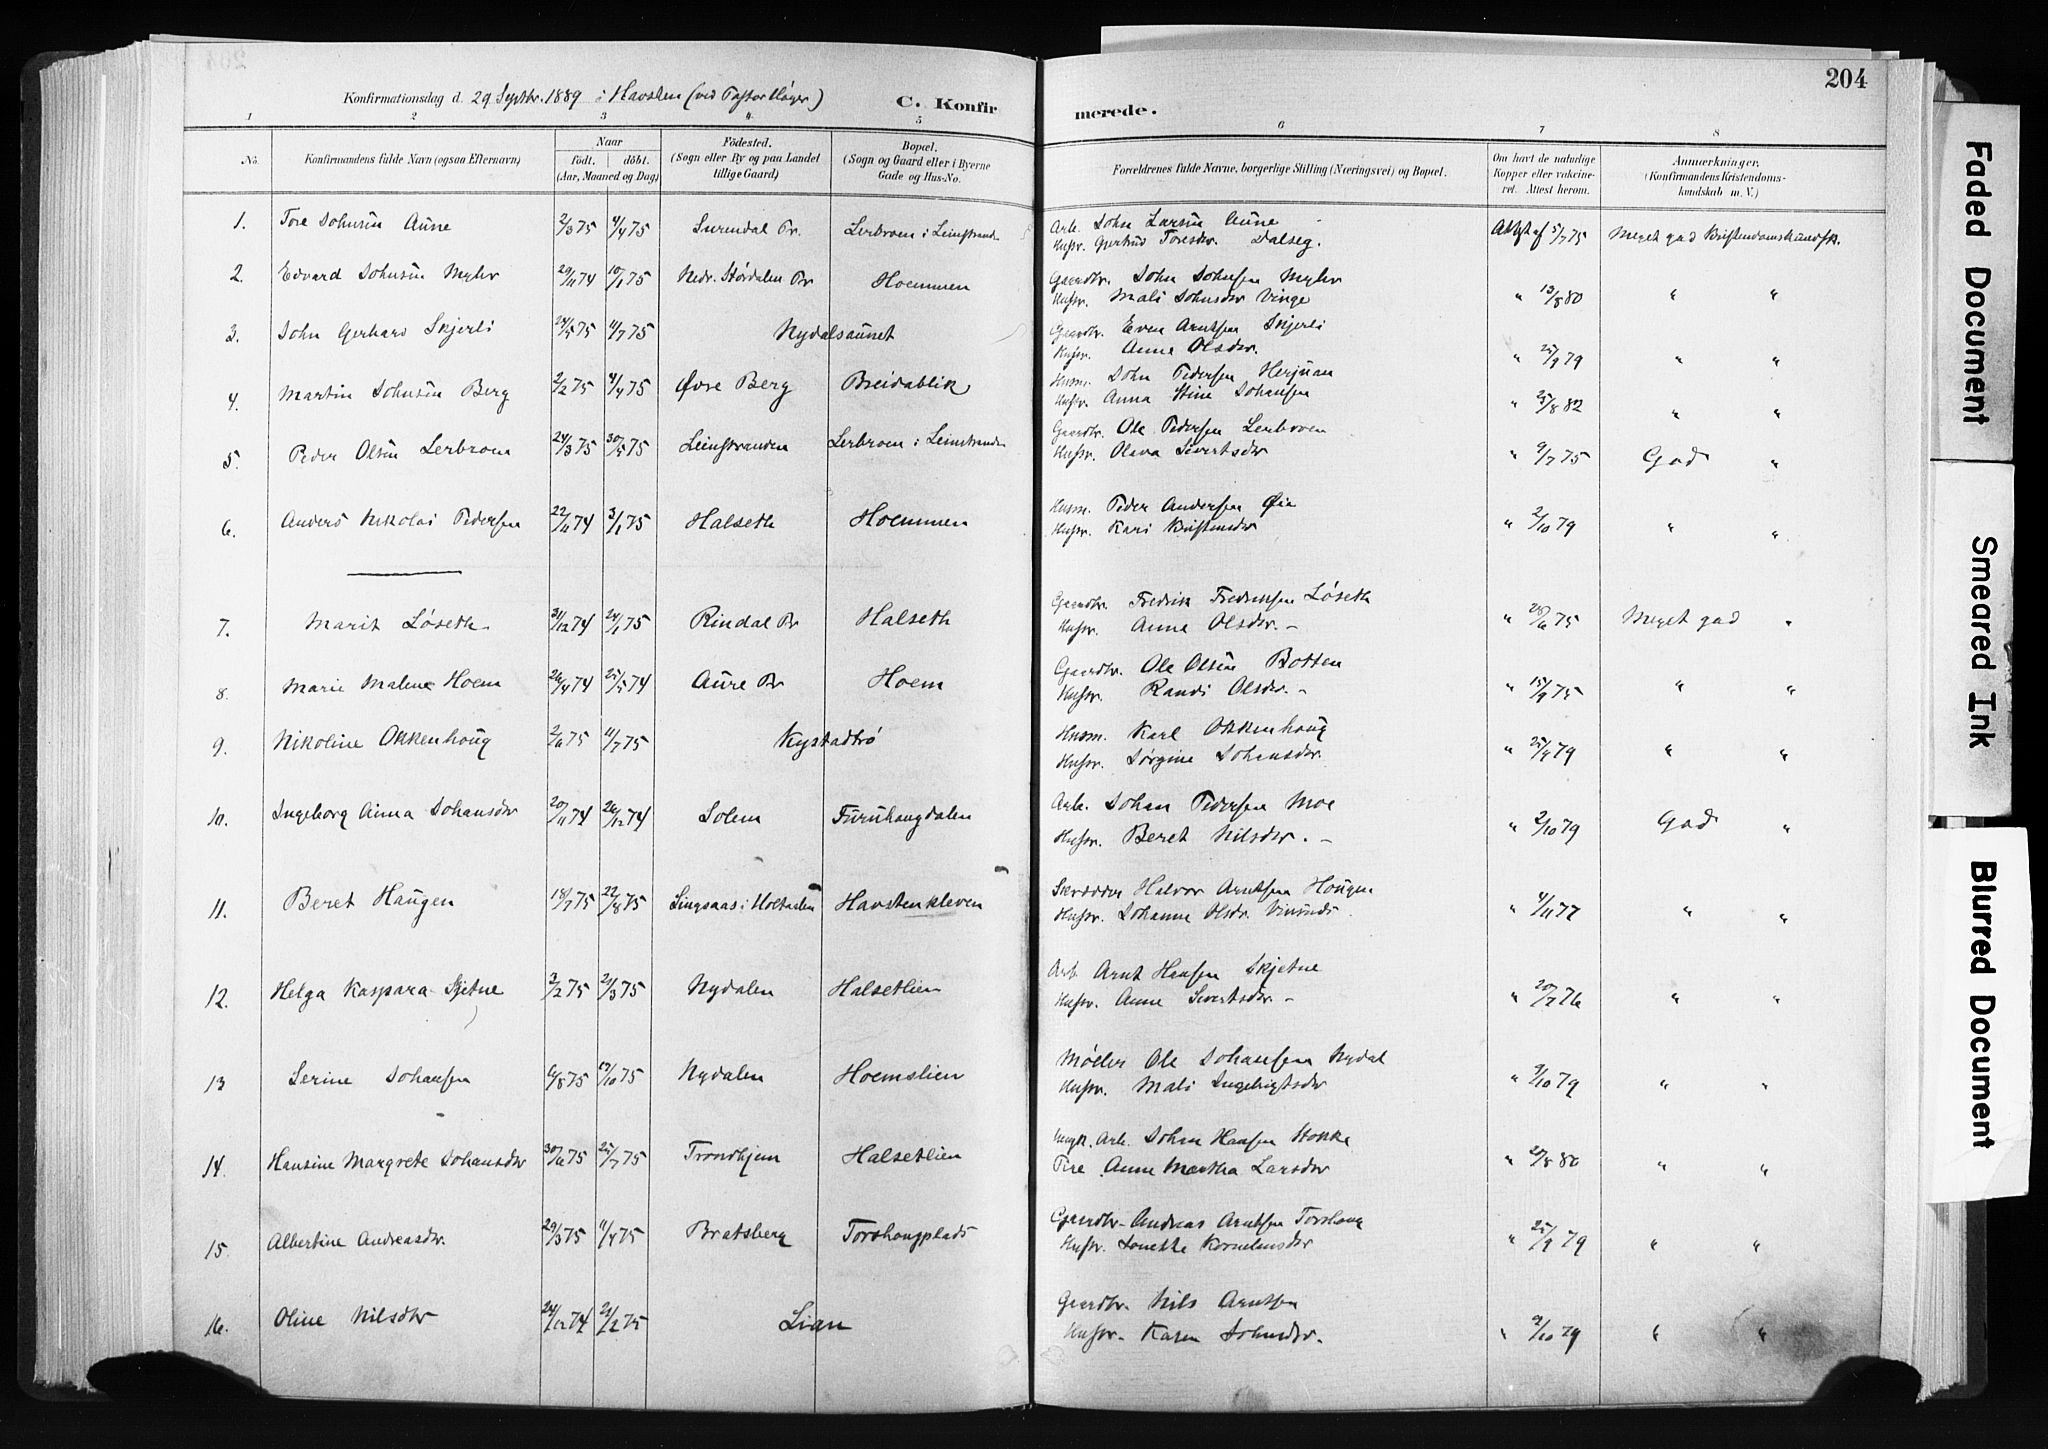 204
Konfirmationsdag d. 29 Septbr. 1889 i Havsten (ved Pastor Høyer) C. Konfirmerede.
1 2 3 4. 5 6 7 8
No. Konfirmandens fulde Navn (ogsaa Efternavn) Naar födt. döbt. (Aar, Maaned og Dag) Födested. (Sogn eller By og paa Landet tillige Gaard) Bopæl. (Sogn og Gaard eller i Byerne Gade og Hus-No. Forældrenes fulde Navne, borgerlige Stilling (Næringsvei) og Bopæl. Om havt de naturlige Kopper eller vakcineret. Attest herom. Anmærkninger. (Konfirmandens Kristendomskundskab m. V.)
1. Tore Johnsen Aune 2/3 75 4/4 75 Surendal Pr. Lerbroen i Leinstranden Arb. John Larsen Aune Attst af 5/7 75 Meget god Kristendomskundsk.
Hustr. Gjertrud Toresdr. Dalseg.
2. Edvard Johnsen Myhr 29/11 74 10/1 75 Nedr. Stördalen Pr Hoemmen Gaardbr. John Johnsen Myhr
Hustr. Mali Johnsdr Vinge " 13/8 80 " "
3. John Gerhard Skjerli 24/5 75 11/7 75 Nydalsaunet Gaardbr. Even Arntsen Skjerli
Hustr. Anne Olsdr. " 25/9 79 " "
4. Martin Johnsen Berg 2/2 75 4/4 75 Øvre Berg Breidablik Husm. John Pedersen Herjuan
Hustr. Anna Stine Johansen " 25/8 82 " "
5. Peder Olsen Lerbroen 24/3 75 30/5 75 Leinstranden Lerbroen i Leinstranden Gaardbr. Ole Pedersen Lerbroen
Hustr. Olava Sivertsdr " 9/7 75 God "
6. Anders Nikolai Pedersen 22/11 74 3/1 75 Halseth Hoemmen Husm. Peder Andersen Øie
Hustr. Kari Kristensdr " 2/10 79 " "
7. Marit Løseth 31/12 74 24/1 75 Rindal Pr Halseth Gaardbr. Fredrik Fredriksen Løseth
Hustr. Anne Olsdr. - " 26/6 75 Meget god "
8. Marie Malene Hoem 26/4 74 25/5 74 Aure Pr Hoem Gaardbr. Ole Olsen Botten
Hustr. Randi Olsdr. - " 15/9 75 " "
9. Nikoline Okkenhoug 2/6 75 11/7 75 Kystadtrö Husm. Karl Okkenhoug
Hustr. Sørgine Johansdr. " 25/4 79 " "
10. Ingeborg Anna Johansdr 20/11 74 26/12 74 Solem Furuhaugdalen Arb. Johan Pedersen Moe
Hustr. Beret Nilsdr. - " 2/10 79 God "
11. Beret Haugen 18/7 75 22/8 75 Singsaas i Holtaalen Havstenkleven Skrædder Halvor Arntsen Hougen
Hustr. Johanne Olsdr. " 4/11 77 " "
12. Helga Kaspara Skjetne 3/2 75 21/3 75 Nydalen Halsetlien Arb. Arnt Hansen Skjetne
Hustr. Anne Sivertsdr. - " 20/7 76 " "
13 Serine Johansen 6/8 75 17/10 75 Nydalen Hoemslien Møller Ole Johansen Nydal
Hustr. Mali Ingebrigtsdr " 9/10 79 " "
14. Hansine Margrete Johansdr 30/6 75 25/7 75 Trondhjem Halsetlien Ungk. Arb. Johan Hansen Stokke
Pige Anne Martha Larsdr " 27/8 80 " "
15. Albertine Andreasdr. 29/3 75 11/4 75 Bratsberg Torshougplads Gaardbr. Andreas Arntsen Torshoug
Hustr. Lonette Korneliusdr " 25/9 79 " "
16. Oline Nilsdtr 24/12 74 21/2 75 Lian Gaardbr. Nils Arntsen
Hustr. Karen Johnsdr. " 2/10 79 " "
Faded Document
Smeared Ink
Blurred Document